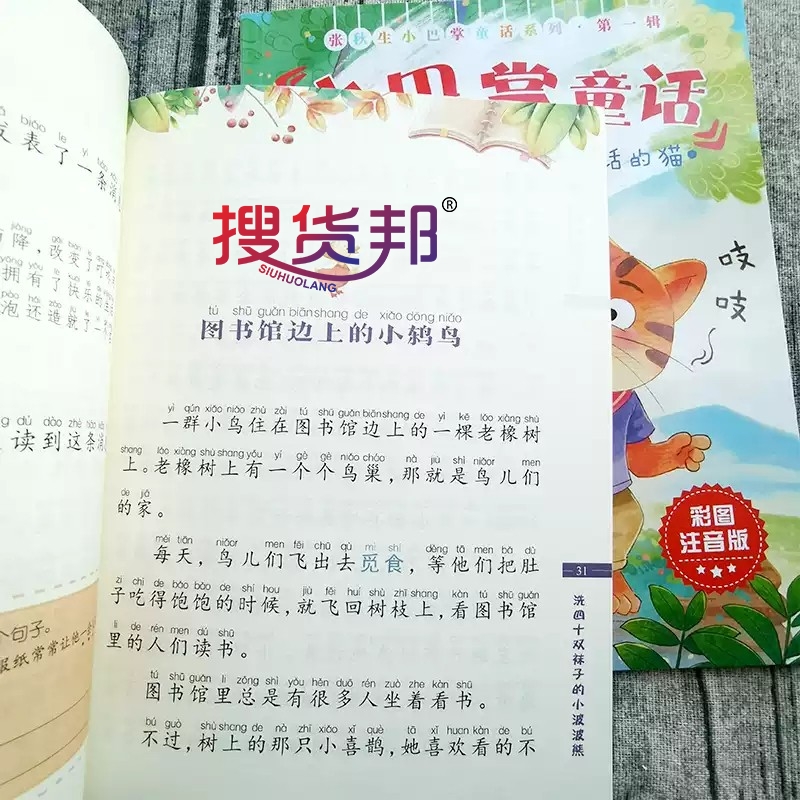 张秋生小巴掌童话系列·第一辑
小巴掌童话
话的猫
吱
吱
彩图
注音版
搜货邦®
SIUHUOLANG
tú shū guǎn biān shang de xiǎo dōng niǎo
图书馆边上的小鸫鸟
yì qún xiǎo niǎo zhù zài tú shū guǎn biān shang de yì kē lǎo xiàng shù
一群小鸟住在图书馆边上的一棵老橡树
shang lǎo xiàng shù shang yǒu yí gè gè niǎo cháo nà jiù shì niǎor men
上。老橡树上有一个个鸟巢，那就是鸟儿们
de jiā
的家。
měi tiān niǎor men fēi chū qù mì shí děng tā men bǎ dù
每天，鸟儿们飞出去觅食，等他们把肚
zi chī de bǎo bǎo de shí hou jiù fēi huí shù zhī shang kàn tú shū guǎn
子吃得饱饱的时候，就飞回树枝上，看图书馆
li de rén men dú shū
里的人们读书。
tú shū guǎn li zǒng shì yǒu hěn duō rén zuò zhe kàn shū
图书馆里总是有很多人坐着看书。
bú guò shù shang de nà zhī xiǎo xǐ què tā xǐ huan kàn de bú
不过，树上的那只小喜鹊，她喜欢看的不
31
洗四十双袜子的小波波熊
biǎo le yì
发表了一条
降，改变了
拥有了快乐的
泡还造就了一
读到这条
个句子。
报纸常常让他